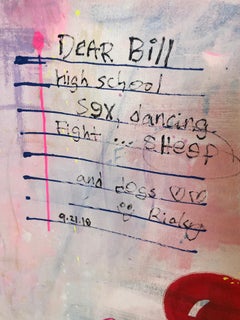 DEAR Bill
High school
sex, dancing
Fight ... SHEEP
and dogs
9.21.18